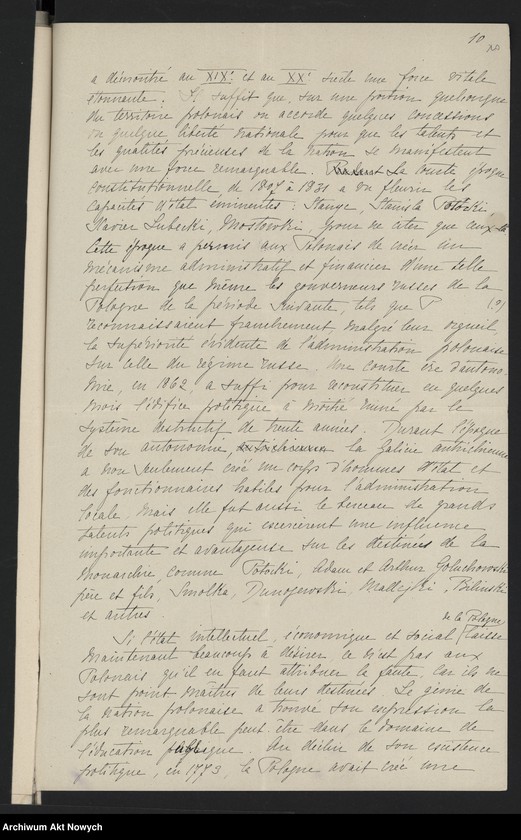 10
a démontré au XIXe et au XXe siècle une force vitale
étonnante. Il suffit que, sur une portion quelconque
du territoire polonais on accorde quelques concessions
ou quelque liberté nationale pour que les talents et
les qualités précieuses de la nation se manifestent
avec une force remarquable. La courte époque
constitutionnelle de à 1831 a vu fleurir les
capacités d'état éminentes: Stanislas Potocki
Xavier Lubecki, Mostowski, pour ne citer que ceux-là
Cette époque a permis aux Polonais de créer un
mécanisme administratif et financier d'une telle
perfection que même les gouverneurs russes de la
Pologne de la période suivante, tels que P (?)
reconnaissaient franchement, malgré leur orgueil,
la supériorité évidente de l'administration polonaise
sur celle du régime russe. Une courte ère d'autono-
mie, en 1862, a suffi pour reconstituer en quelques
mois l'édifice politique à moitié ruiné par le
système destructif de trente années. Durant l'époque
de son autonomie, la Galicie autrichienne
a non seulement créé un corps d'hommes d'état et
des fonctionnaires habiles pour l'administration
locale, mais elle fut aussi le berceau de grands
talents politiques qui exercèrent une influence
importante et avantageuse sur les destinées de la
monarchie, comme Potocki, Adam et Arthur Goluchowski
père et fils, Smolka, Dunajewski, Madejski, Bilinski
et autres.
Si l'état intellectuel, économique et social de la Pologne laisse
maintenant beaucoup à désirer, ce n'est pas aux
Polonais qu'il en faut attribuer la faute, car ils ne
sont point maîtres de leurs destinées. Le génie de
la nation polonaise a trouvé son expression la
plus remarquable peut-être dans le domaine de
l'éducation publique. Au déclin de son existence
politique, en 1773, la Pologne avait créé une
Archiwum Akt Nowych